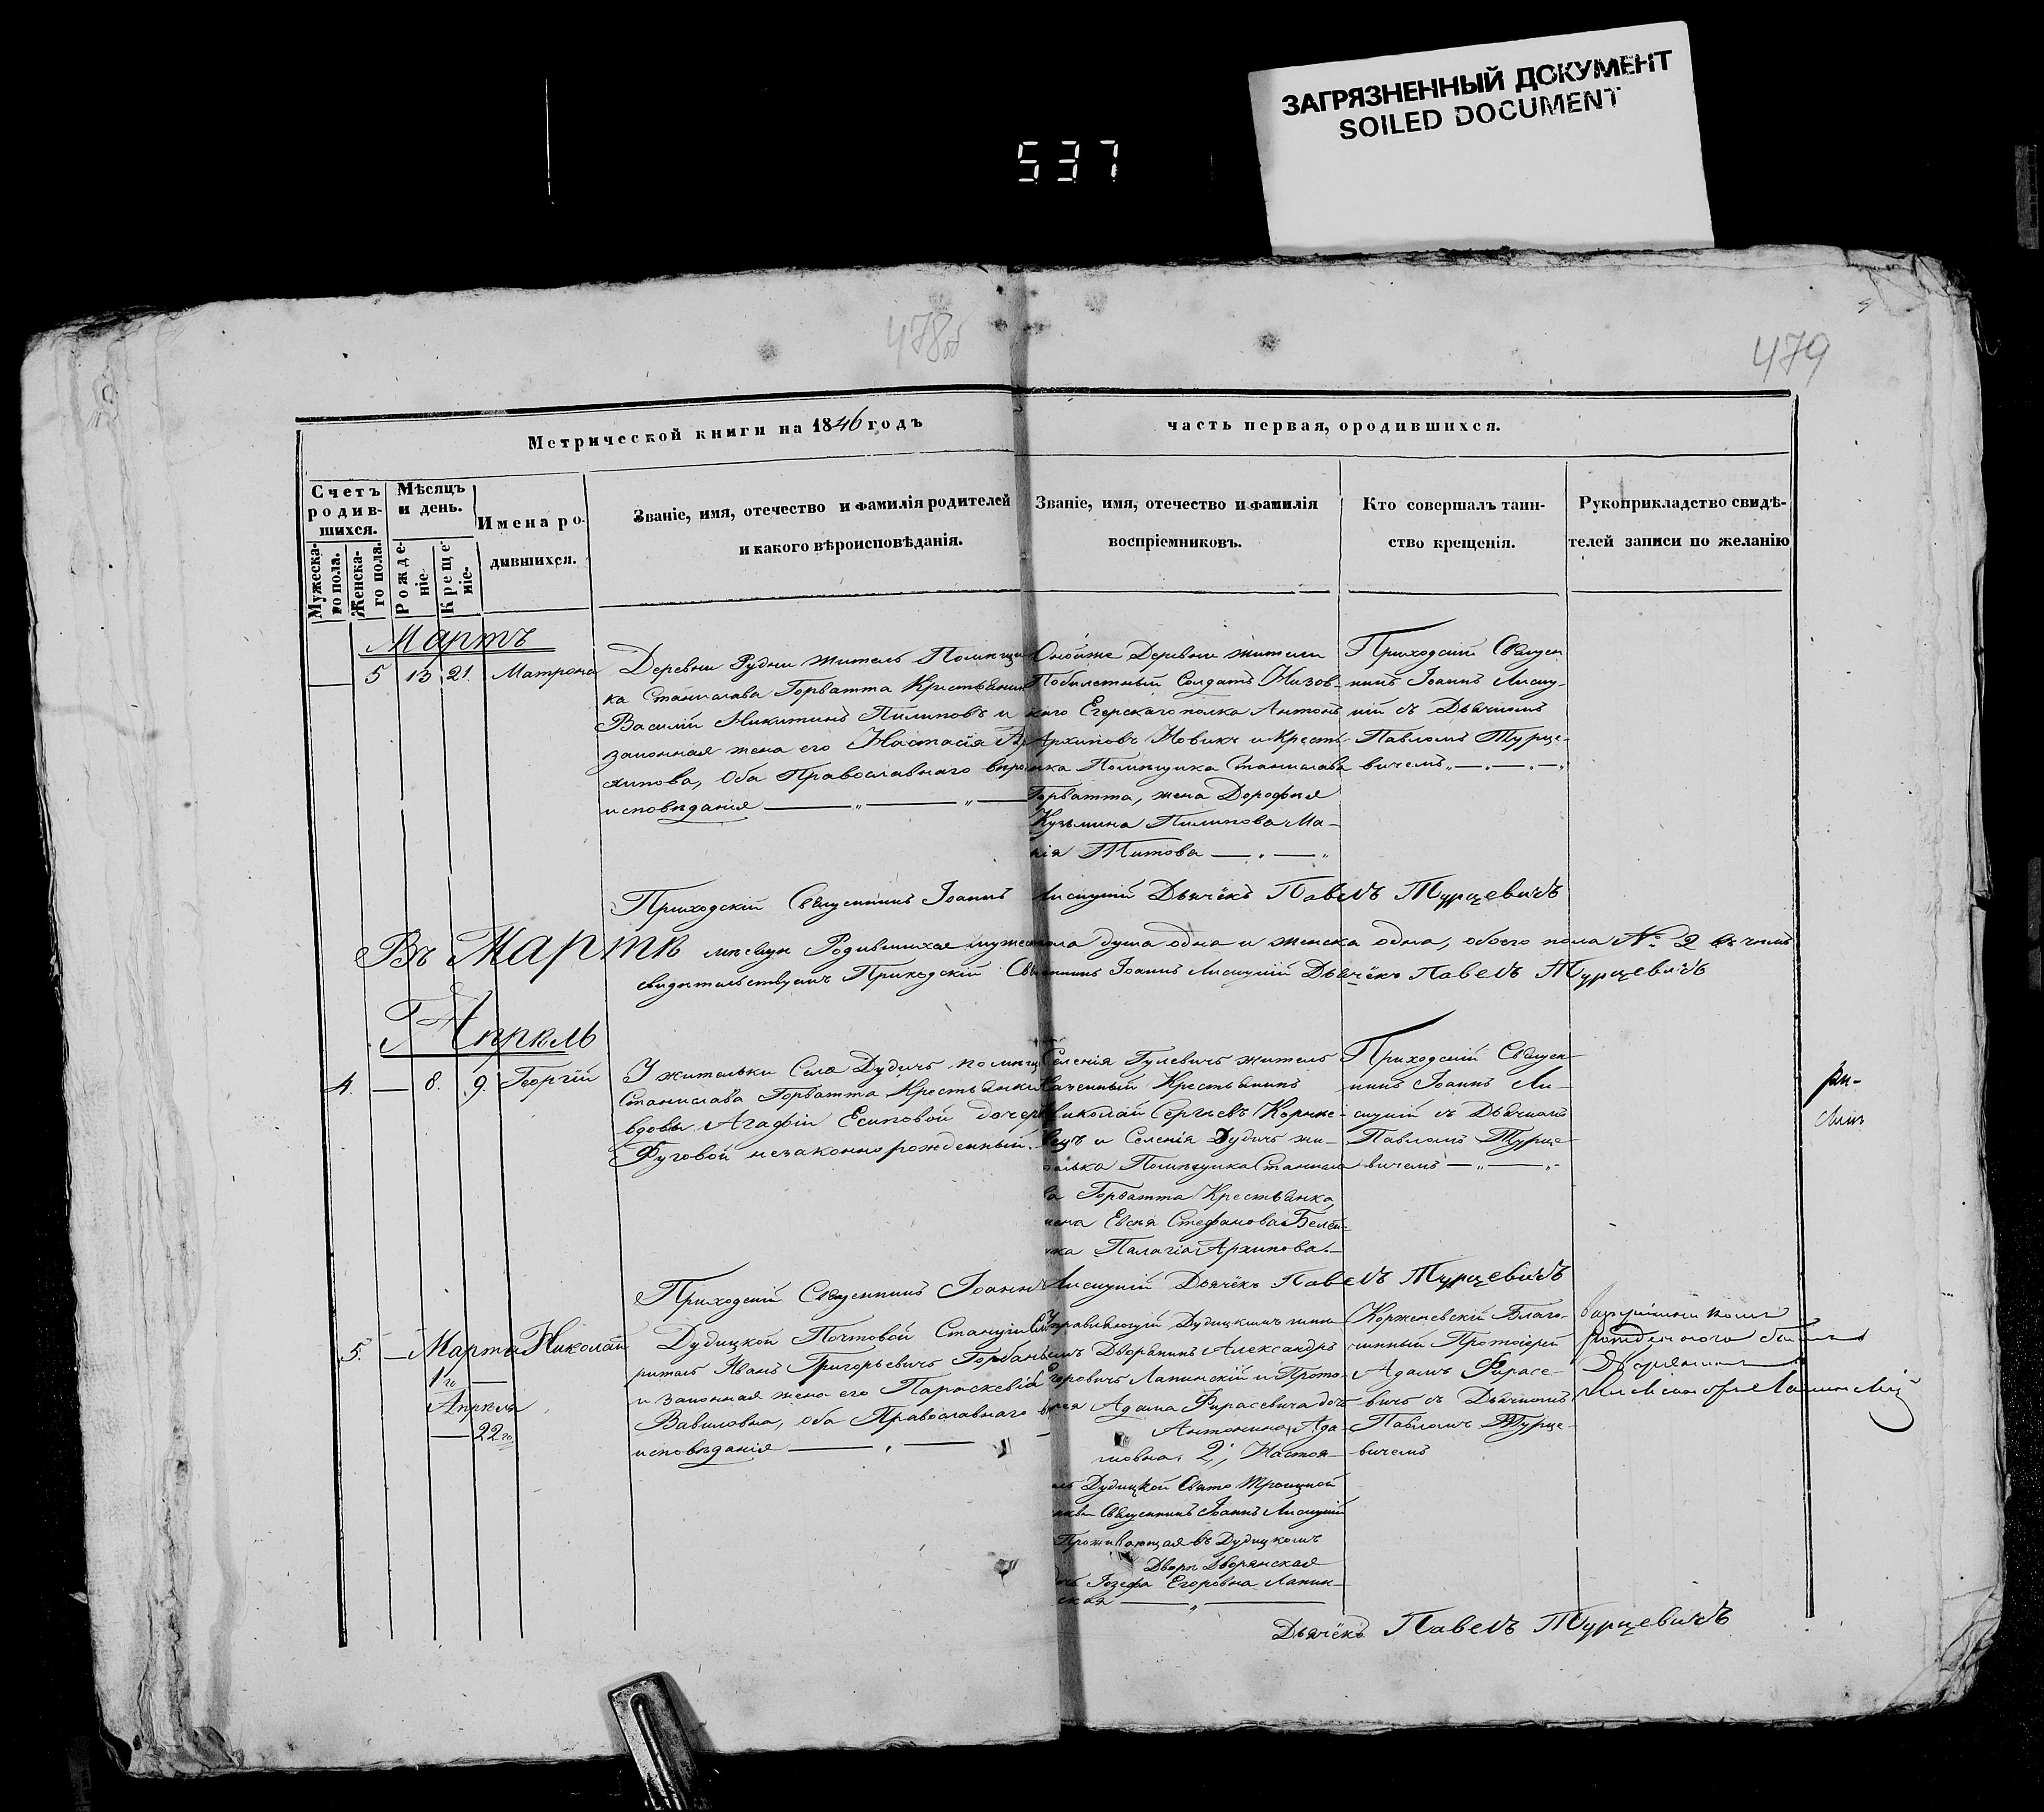 ЗАГРЯЗНЕННЫЙ ДОКУМЕНТ
SOILED DOCUMENT
537
478об
479
Метрической книги на 1846 годъ
часть первая, ородившихся.
Счетъ родившихся.
Мужеска-го пола.
Женска-го пола.
Мѣсяцъ и день.
Рожденіе.
Крещеніе.
Имена родившихся.
Званіе, имя, отечество и фамилія родителей
и какого вѣроисповѣданія.
Званіе, имя, отечество и фамилія
воспріемниковъ.
Кто совершалъ таин-
ство крещенія.
Рукоприкладство свидѣ-
телей записи по желанію
Мартъ
5 13 21. Матрона
Деревни Рудни житель Помѣщи-
ка Станислава Горватта Крестьянинъ
Василій Никитинъ Пилиповъ и
законная жена его Настасія Ар-
хипова, Оба Православнаго вѣро-
исповѣданія
Оной же Деревни жители
Побилетный Солдатъ Низов-
скаго Егерскаго полка Антонъ
Архиповъ Новикъ и Кресть-
янка Помѣщика Станислава
Горватта, жена Дорофея
Кузьмина Пилипова Ма-
Титова
Приходскій Священ-
никъ Іоаннъ Лисиц-
кій съ Дьячкомъ
Павломъ Турце-
вичемъ
Приходскій Священникъ Іоаннъ Лисицкій Дьячёкъ Павелъ Турцевичъ
Въ Мартѣ мѣсяцѣ Родившихся мужеска пола душа одна и женска одна, обоего пола № 2 въ чемъ
свидѣтельствуемъ Приходскій Священникъ Іоаннъ Лисицкій Дьячёкъ Павелъ Турцевичъ
Апрѣль
4. — 8. 9. Георгій
У жительки Села Дудичъ помѣщ
Станислава Горватта Крестьянки
вдовы Агафіи Есиповой дочери
незаконно рожденный.
Селенія Гулевичъ житель
Казенный Крестьянинъ
Николай Сергѣевъ Корнѣ-
вецъ и Селенія Дудичъ жи-
телька Помѣщика Станисла-
ва Горватта Крестьянка,
жена Евсѣя Стефанова
Палагія Архипова.
Приходскій Священ-
никъ Іоаннъ Ли-
сицкій съ Дьячкомъ
Павломъ Турце-
вичемъ
Приходскій Священникъ Іоаннъ Лисицкій Дьячёкъ Павелъ Турцевичъ
5. — Марта 1го Апрѣля 22го Николай
Дудицкой Почтовой Станціи Смо-
тритель Иванъ Григорьевичъ Горбань
и законная жена его Параскевія
Вавиловна, оба Православнаго вѣ
исповѣданія
Управляющій Дудицкимъ имѣ-
ніемъ Дворянинъ Александръ
Егоровичъ Лапинскій и Прото-
іерея Адама Фирасевича дочь
Антонина Ада-
мовна. 2, Настоя-
тель Дудицкой Свято Троицкой
церкви Священникъ Іоаннъ Лисицкій
Проживающая въ Дудицкомъ
Дворѣ Дворянская
дочь Іозефа Егоровна Лапин-
ская
Корженевскій Благо-
чинный Протоіерей
Адамъ Фирасе-
вичъ съ Дьячкомъ
Павломъ Турце-
вичемъ
Дьячёкъ Павелъ Турцевичъ